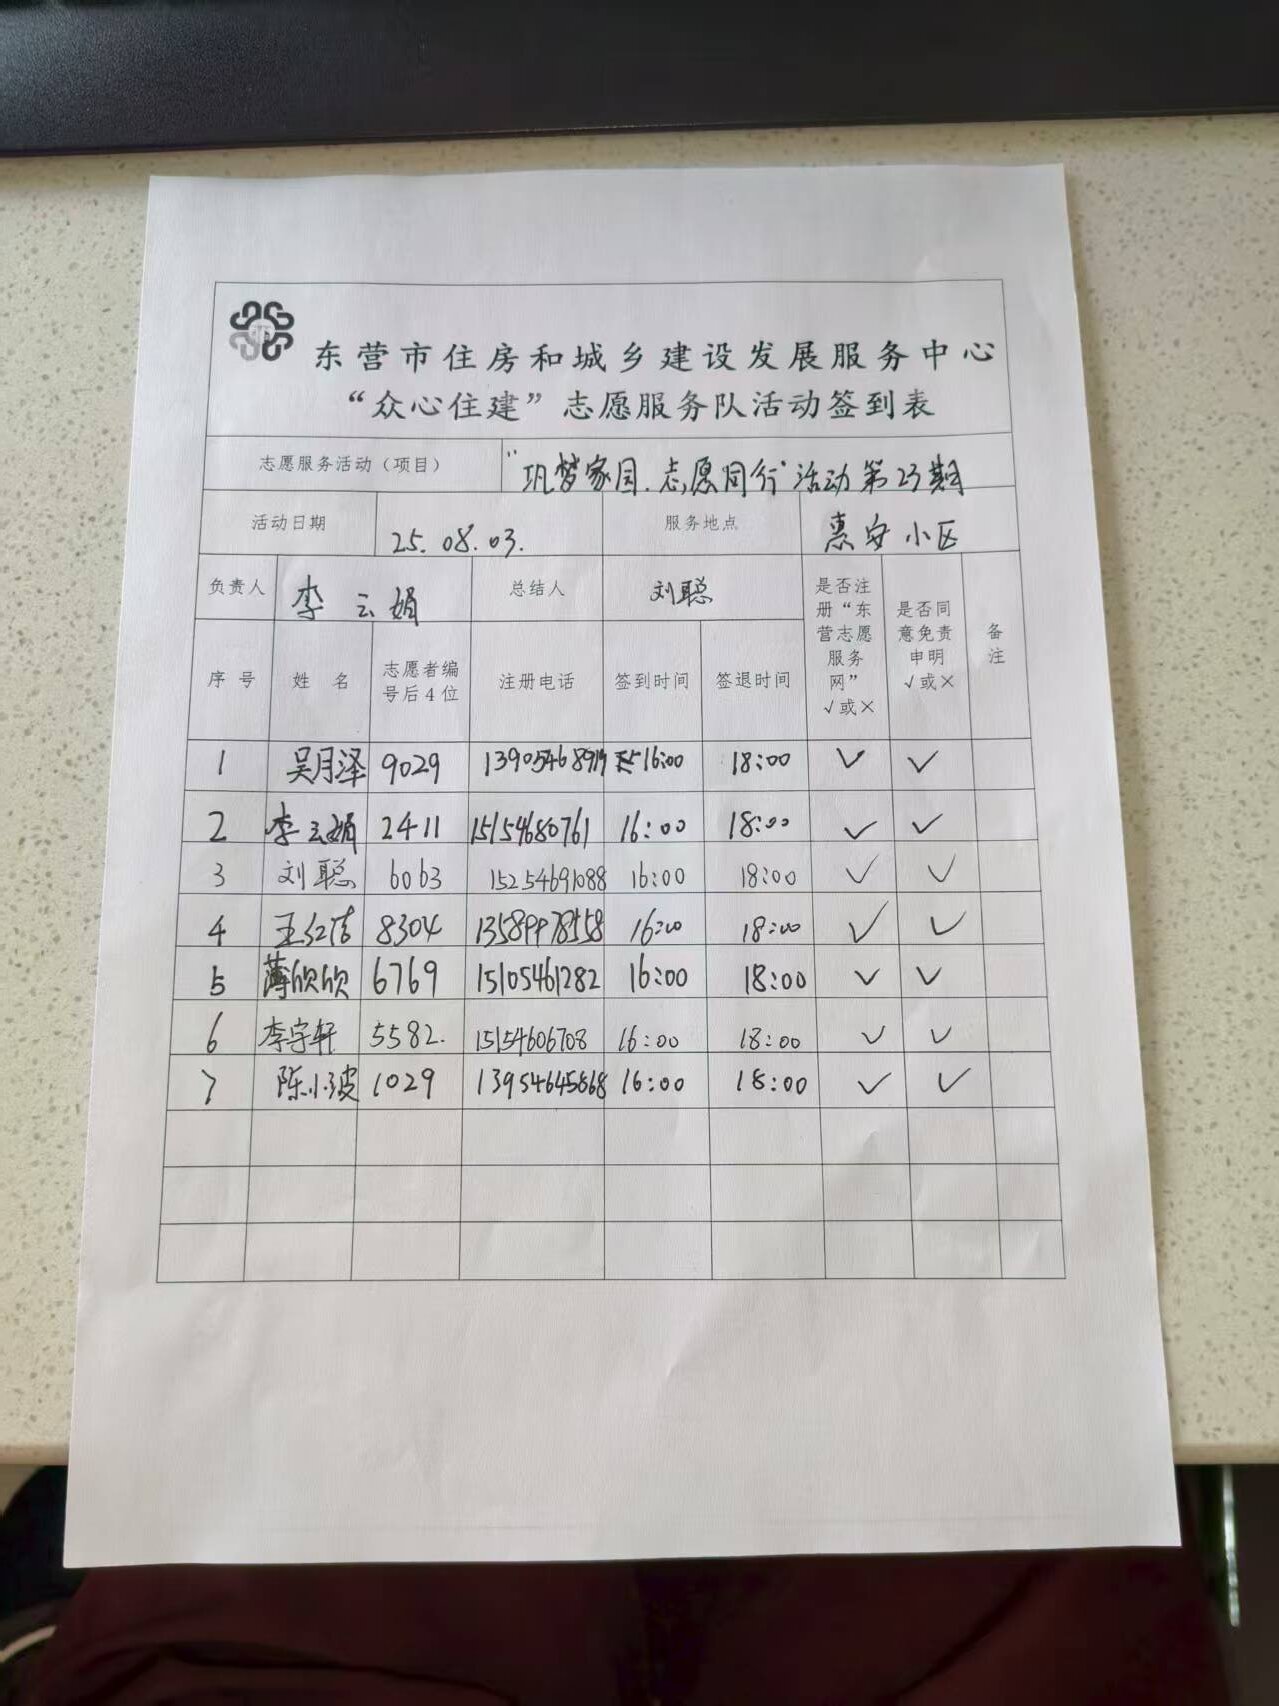 东营市住房和城乡建设发展服务中心
“众心住建”志愿服务队活动签到表
志愿服务活动（项目） “巩梦家园.志愿同行”活动第23期
活动日期 25.08.03. 服务地点 惠安小区
负责人 李云娟 总结人 刘聪 是否注册“东营志愿服务网”√或× 是否同意免责申明√或× 备注
序号 姓名 志愿者编号后4位 注册电话 签到时间 签退时间
1 吴月泽 9029 16:00 18:00 ✓ ✓
2 李云娟 2411 15154680761 16:00 18:00 ✓ ✓
3 刘聪 6063 15254691088 16:00 18:00 ✓ ✓
4 王红洁 8304 13589978558 16:00 18:00 ✓ ✓
5 薄欣欣 6769 15105461282 16:00 18:00 ✓ ✓
6 李宇轩 5582. 15154606708 16:00 18:00 ✓ ✓
7 陈小波 1029 13954645868 16:00 18:00 ✓ ✓